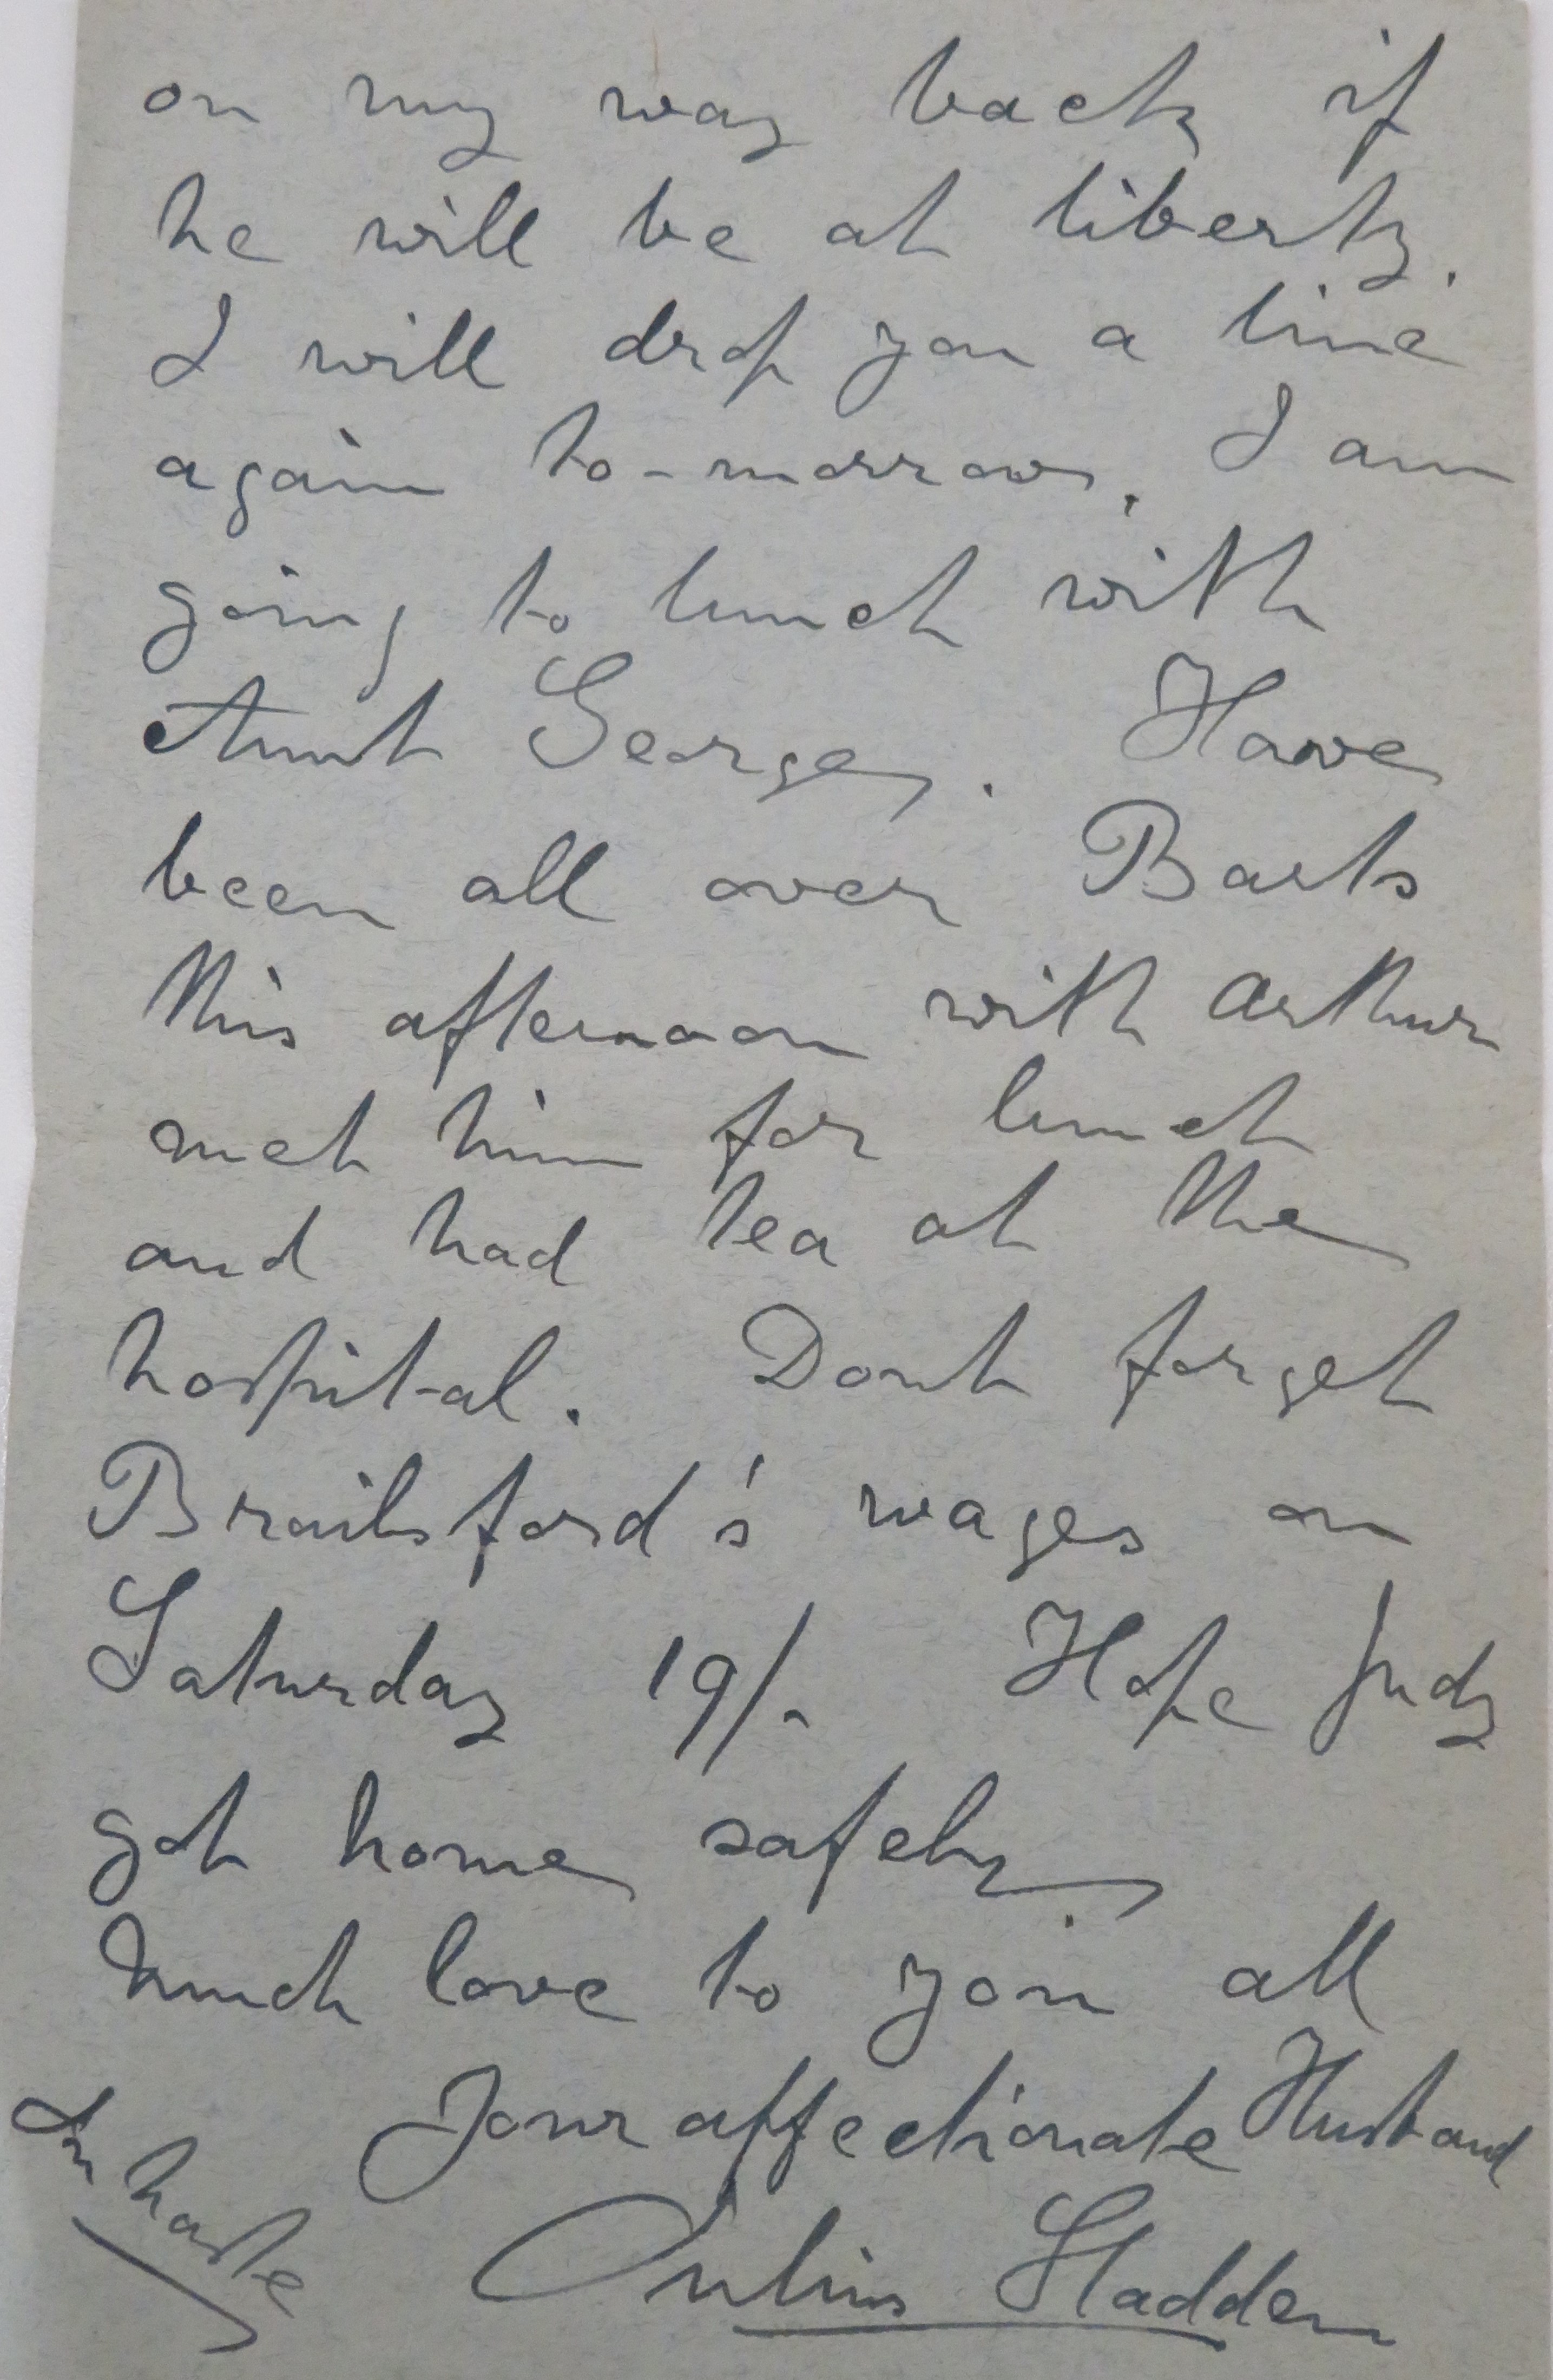 on my way back if
he will be at liberty.
I will drop you a line
again to-morrow. I am
going to lunch with
Aunt George. Have
been all over Barts
this afternoon with Arthur
met him for lunch
and had tea at the
hospital. Dont forget
Brailsford's wages on
Saturday 19/- Hope Judy
got home safely.
Much love to you all
Your affectionate Husband
In haste
Julius Sladden